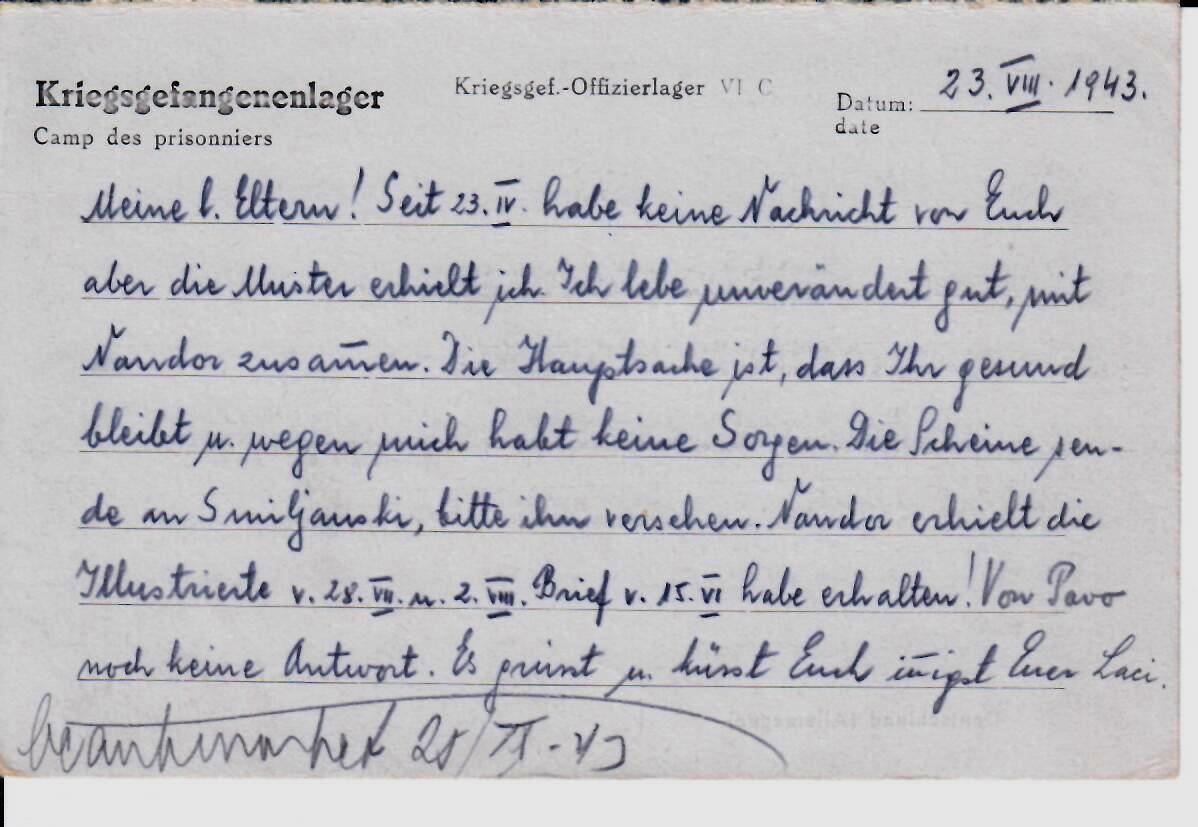 Kriegsgefangenenlager
Camp des prisonniers
Kriegsgef.-Offizierlager VI C
Datum: 23. VIII. 1943.
date
Meine l. Eltern! Seit 23. IV. habe keine Nachricht von Euch
aber die Muster erhielt ich. Ich lebe unverändert gut, mit
Nandor zusam̄en. Die Hauptsache ist, dass Ihr gesund
bleibt u. wegen mich habt keine Sorgen. Die Scheine sen-
de an Smiljanski, bitte ihn versehen. Nandor erhielt die
Illustrierte v. 28. VII. u. 2. VIII. Brief v. 15. VI habe erhalten! Von Pavo
noch keine Antwort. Es grüsst u. küsst Euch in̄igst Euer Laci.
beantwortet